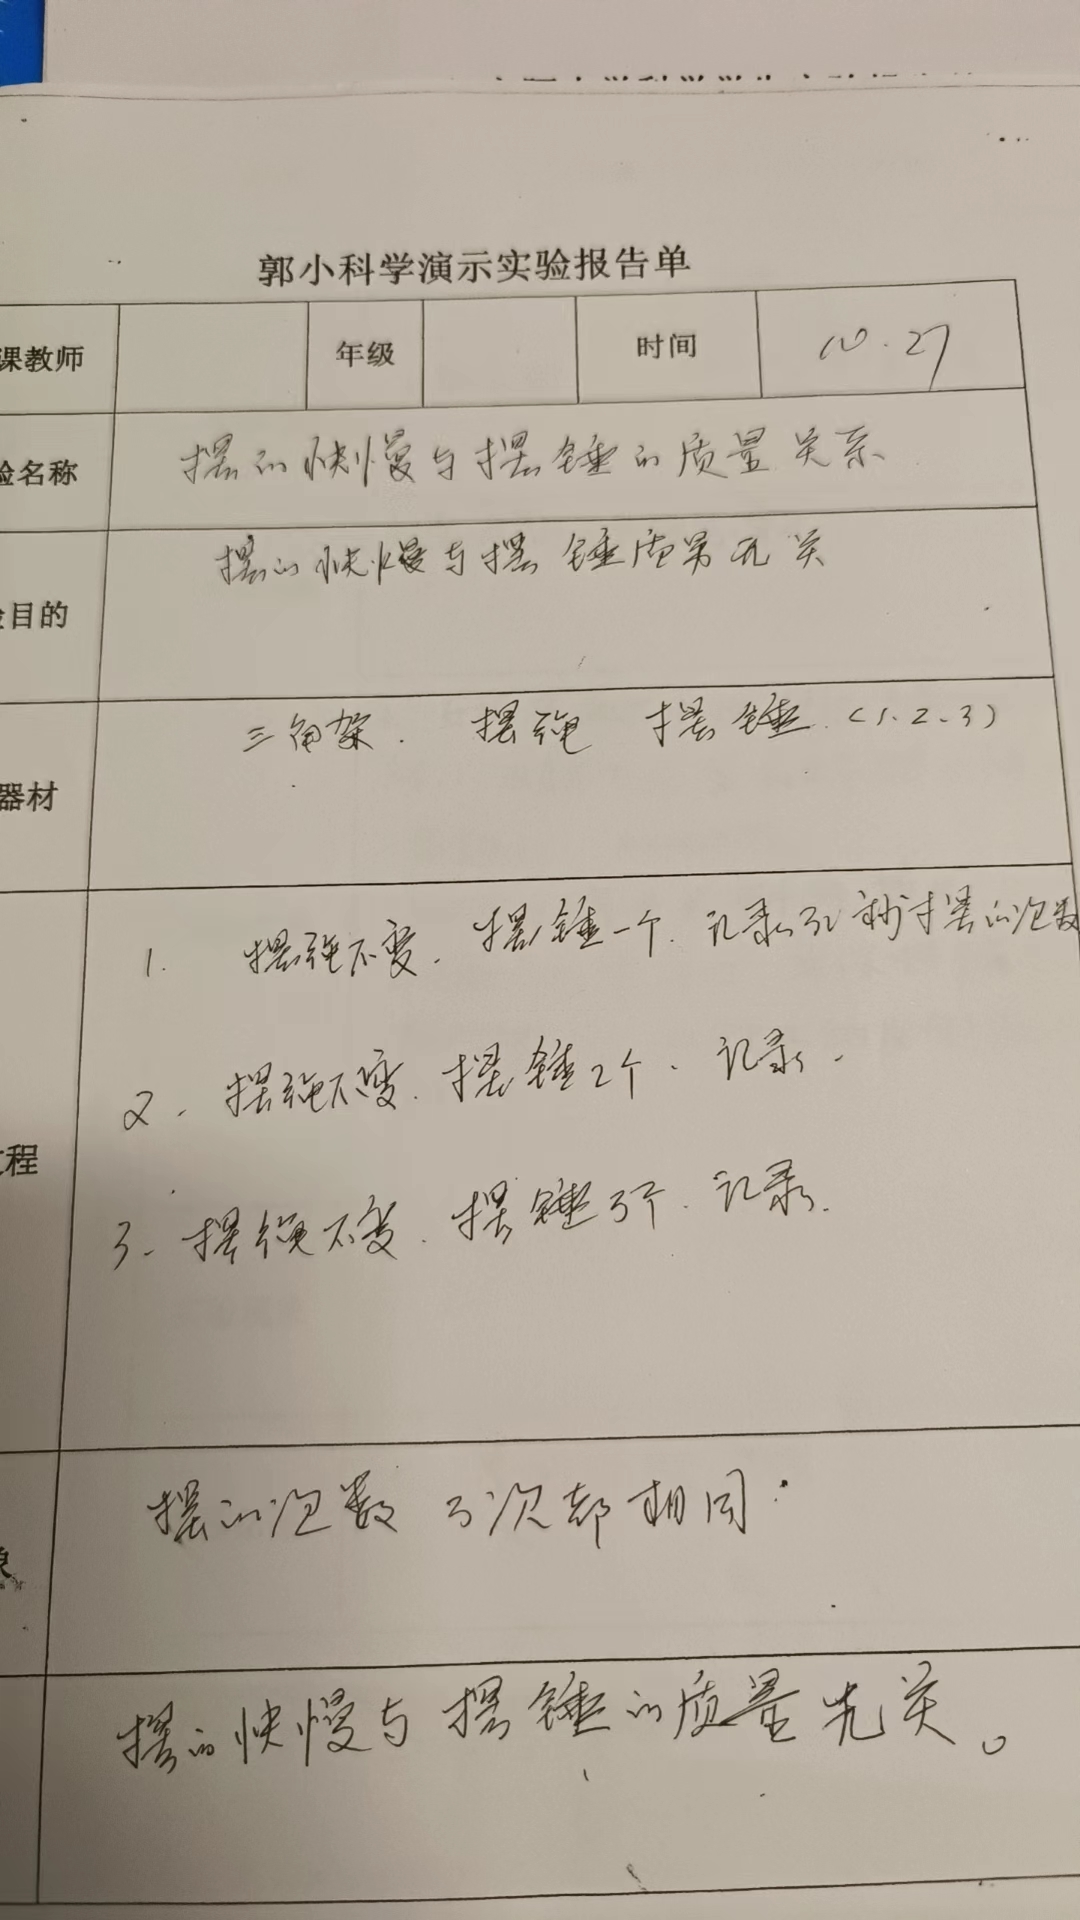 郭小科学演示实验报告单
课教师 年级 时间 10.27
验名称 摆的快慢与摆锤的质量关系
目的 摆的快慢与摆锤质量无关
器材 三角架. 摆绳 摆锤.(1.2.3)
1. 摆绳不变. 摆锤一个. 记录30秒摆的次数
2. 摆绳不变. 摆锤2个. 记录.
程
3. 摆绳不变. 摆锤3个. 记录.
象 摆的次数3次都相同.
摆的快慢与摆锤的质量无关。